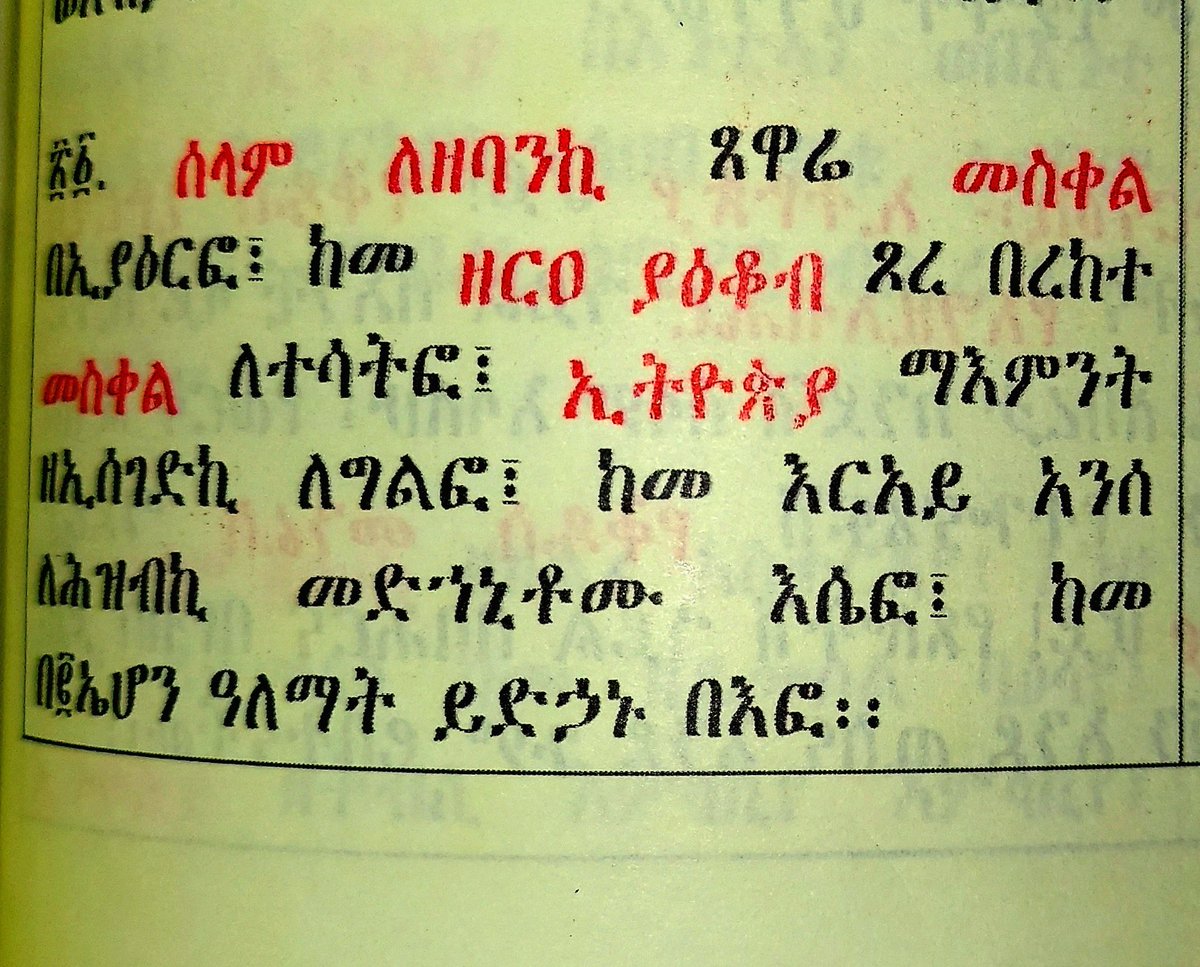 ፳፩. ሰላም ለዘባንኪ ጸዋሬ መስቀል
በኢያዕርፎ፤ ከመ ዘርዐ ያዕቆብ ጾረ በረከተ
መስቀል ለተሳትፎ፤ ኢትዮጵያ ማእምንት
ዘኢሰገድኪ ለግልፎ፤ ከመ እርአይ አንሰ
ለሕዝብኪ መድኀኒቶሙ እሴፎ፤ ከመ
በ፪ኤሆን ዓለማት ይድኃኑ በእፎ፡፡